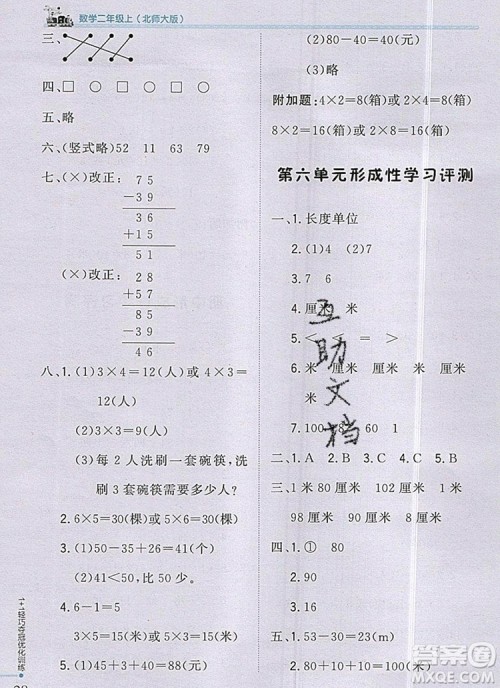 数学二年级上(北师大版)
三、
四、□ ○ □ ○ □ □
五、略
六、(竖式略)52 11 63 79
七、(×)改正: 7 5
－3 9
3 6
＋1 5
5 1
(×)改正: 2 8
＋5 7
8 5
－3 9
4 6
八、1. (1)3×4=12(人)或 4×3=
12(人)
(2)3×3=9(人)
(3)每 2 人洗刷一套碗筷,洗
刷 3 套碗筷需要多少人?
2. 6×5=30(棵)或 5×6=30(棵)
3. (1)50-41=9(个)
(2)41<50 少一些
4. 6-1=5
3×5=15(米)或 5×3=15(米)
5. (1)45+43=88(元)
1+1轻巧夺冠优化训练
38
(2)80-40=40(元)
(3)略
附加题:4×2=8(箱)或 2×4=8(箱)
8×2=16(箱)或 2×8=16(箱)
第六单元形成性学习评测
一、1. 长度单位
2. (1)4 (2)7
3. 7 6
4. 厘米 厘米 米
5. < = > <
6. 米 厘米 厘米 厘米 米
厘米
7. 100 82 60 1
二、1. A 2. B 3. B 4. B
三、1 米 80 厘米 102 厘米 1 米
98 厘米 90 厘米 9 厘米
四、1. ① 80
2. 9
3. 16
五、1. 53-30=23(m)
2. 80+10+10=100(厘米)
互助文档
答案圈
MXQE.COM